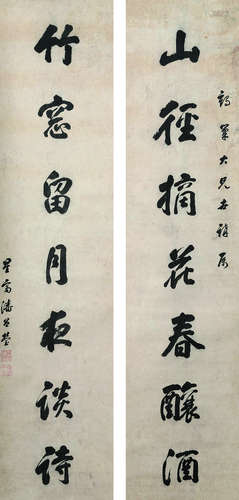 大兄雅屬
山徑摘花春釀酒
竹窓留月夜談詩
星齋潘曾瑩